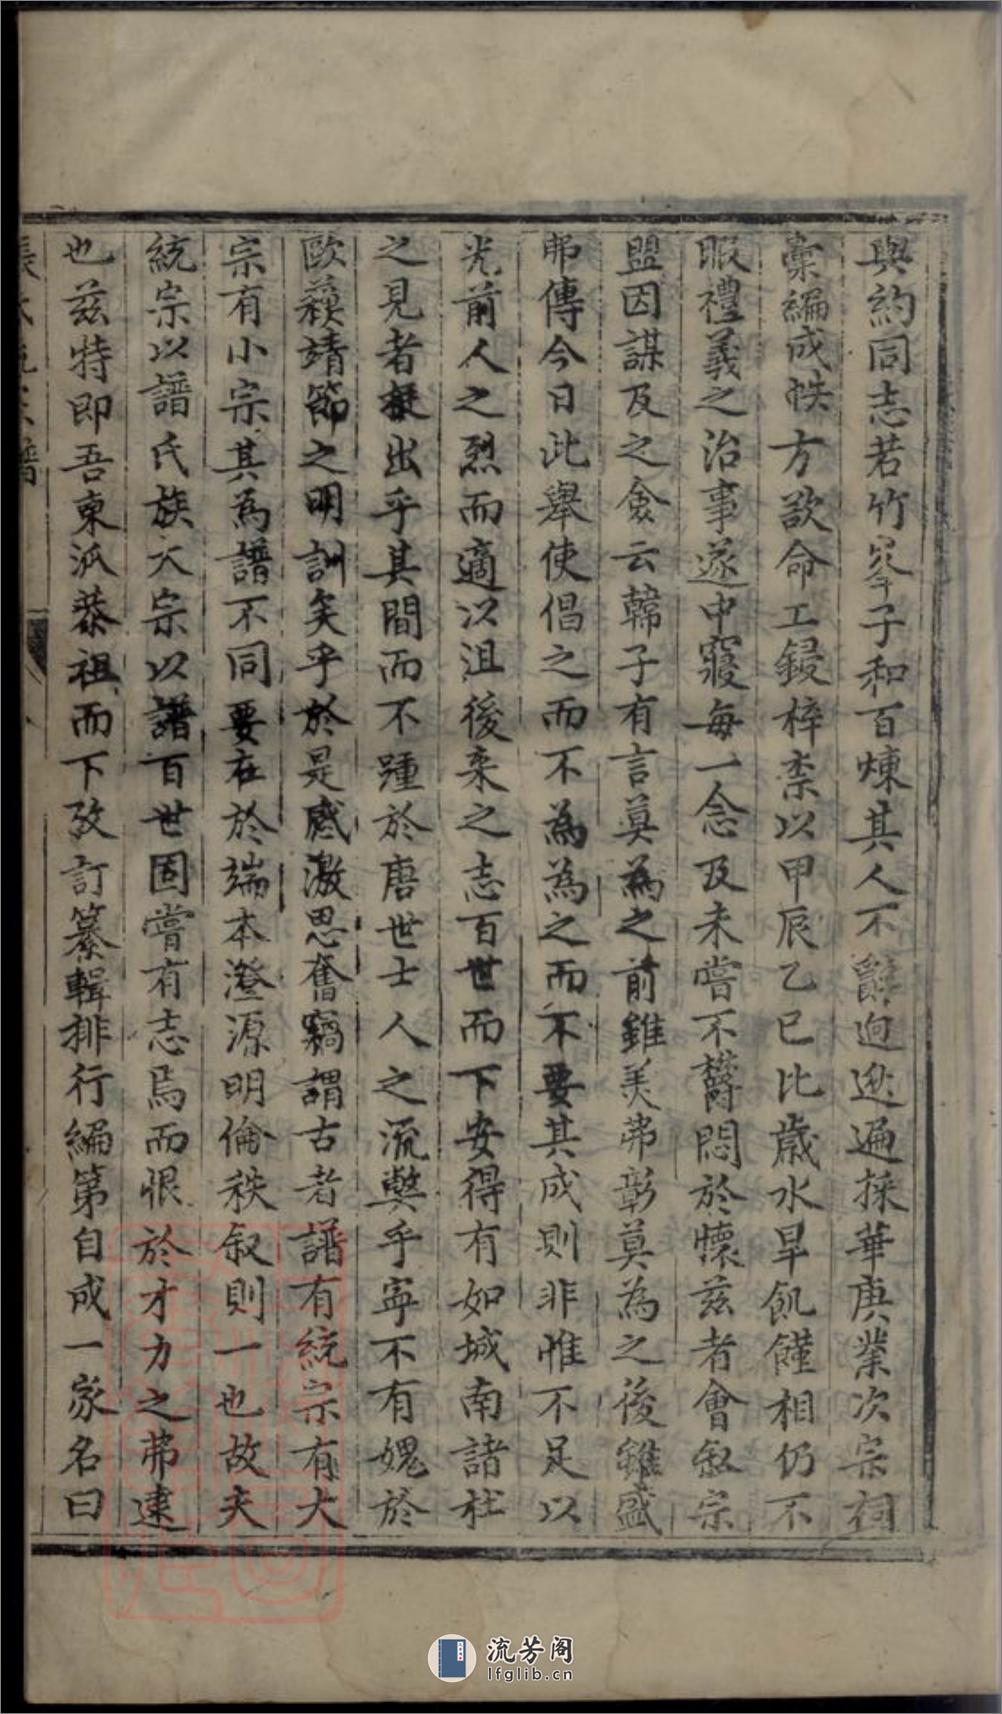 與約同志若竹峯子和百煉其人不辭迢遞遍採華庚業次宗祠
稾編成帙方欲命工鋟梓柰以甲辰乙巳比歲水旱飢饉相仍不
暇禮義之治事遂中寢每一念及未嘗不欝悶於懷茲者會叙宗
盟因謀及之僉云韓子有言莫為之前雖美弗彰莫為之後雖盛
弗傳今日此舉使倡之而不為為之而不要其成則非惟不足以
光前人之烈而適以沮後来之志百世而下安得有如城南諸杜
之見者擬出乎其間而不踵於唐世士人之流弊乎寧不有媿於
歐蘇靖節之明訓矣乎於是感激思奮竊謂古者譜有統宗有大
宗有小宗其為譜不同要在於端本澄源明倫秩叙則一也故夫
統宗以譜氏族大宗以譜百世固嘗有志焉而恨於才力之弗逮
也兹特即吾東派恭祖而下攷訂纂輯排行編第自成一家名曰
流芳阁
lfglib.cn